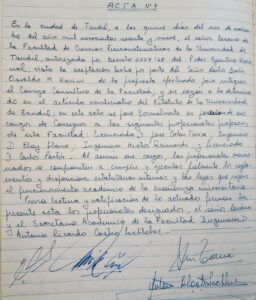 ACTA Nº 7
En la ciudad de Tandil, a los quince días del mes de
de del año mil novecientos sesenta y nueve, el señor Decano de
la Facultad de Ciencias Fisicomatemáticas de la Universidad de
Tandil, autorizada por Decreto 2227/68 del Poder Ejecutivo Nacio
nal, visto la aceptación hecha por parte del Señor
Osvaldo M. de la propuesta efectuada para integrar
el Consejo Consultivo de la Facultad, y en razón a lo determina
do en el artículo del Estatuto de la Universidad
de Tandil, en este año se pone formalmente en posesión de sus
cargos de Consejeros a los siguientes profesionales profesores
de esta Facultad: Licenciado José Carlos, Ingeniero
D. Eloy, Ingeniero Héctor Raimundo y Licenciado
D. Carlos. Al asumir sus cargos, los profesionales nomi
nados se comprometen a cumplir y ejecutar fielmente los regla
mentos y disposiciones estatutarias internas y las leyes que rigen
el funcionamiento académico de la enseñanza universitaria.
Previa lectura y ratificación de lo actuado firman la
presente acta los profesionales designados, el señor Decano
y el Secretario Académico de la Facultad Ingeniero D.
Antonio Ricardo Castro Lechtaler.